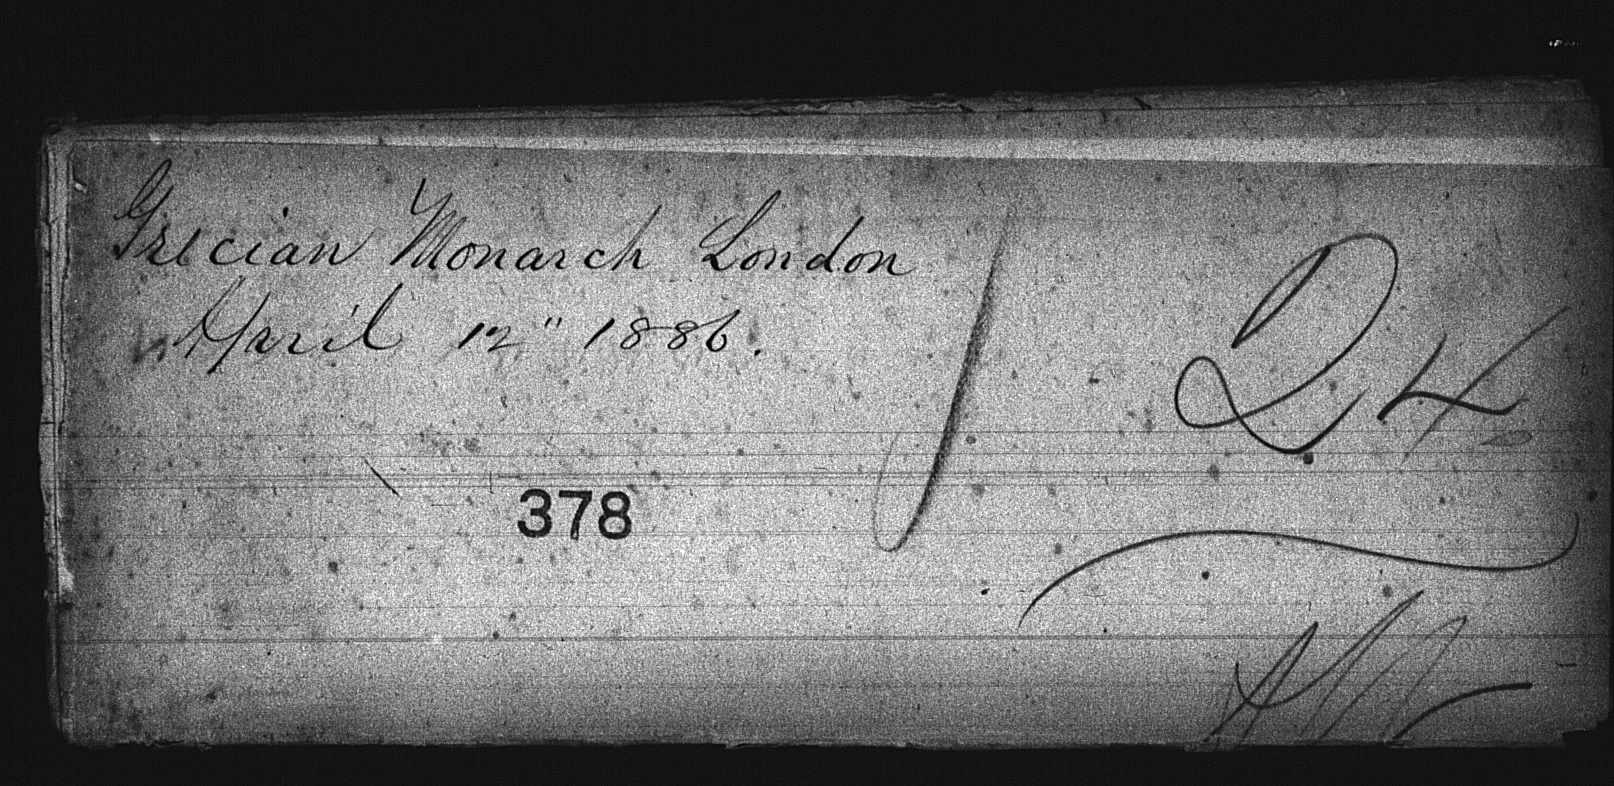 Grecian Monarch London
April 12" 1886.
24
378